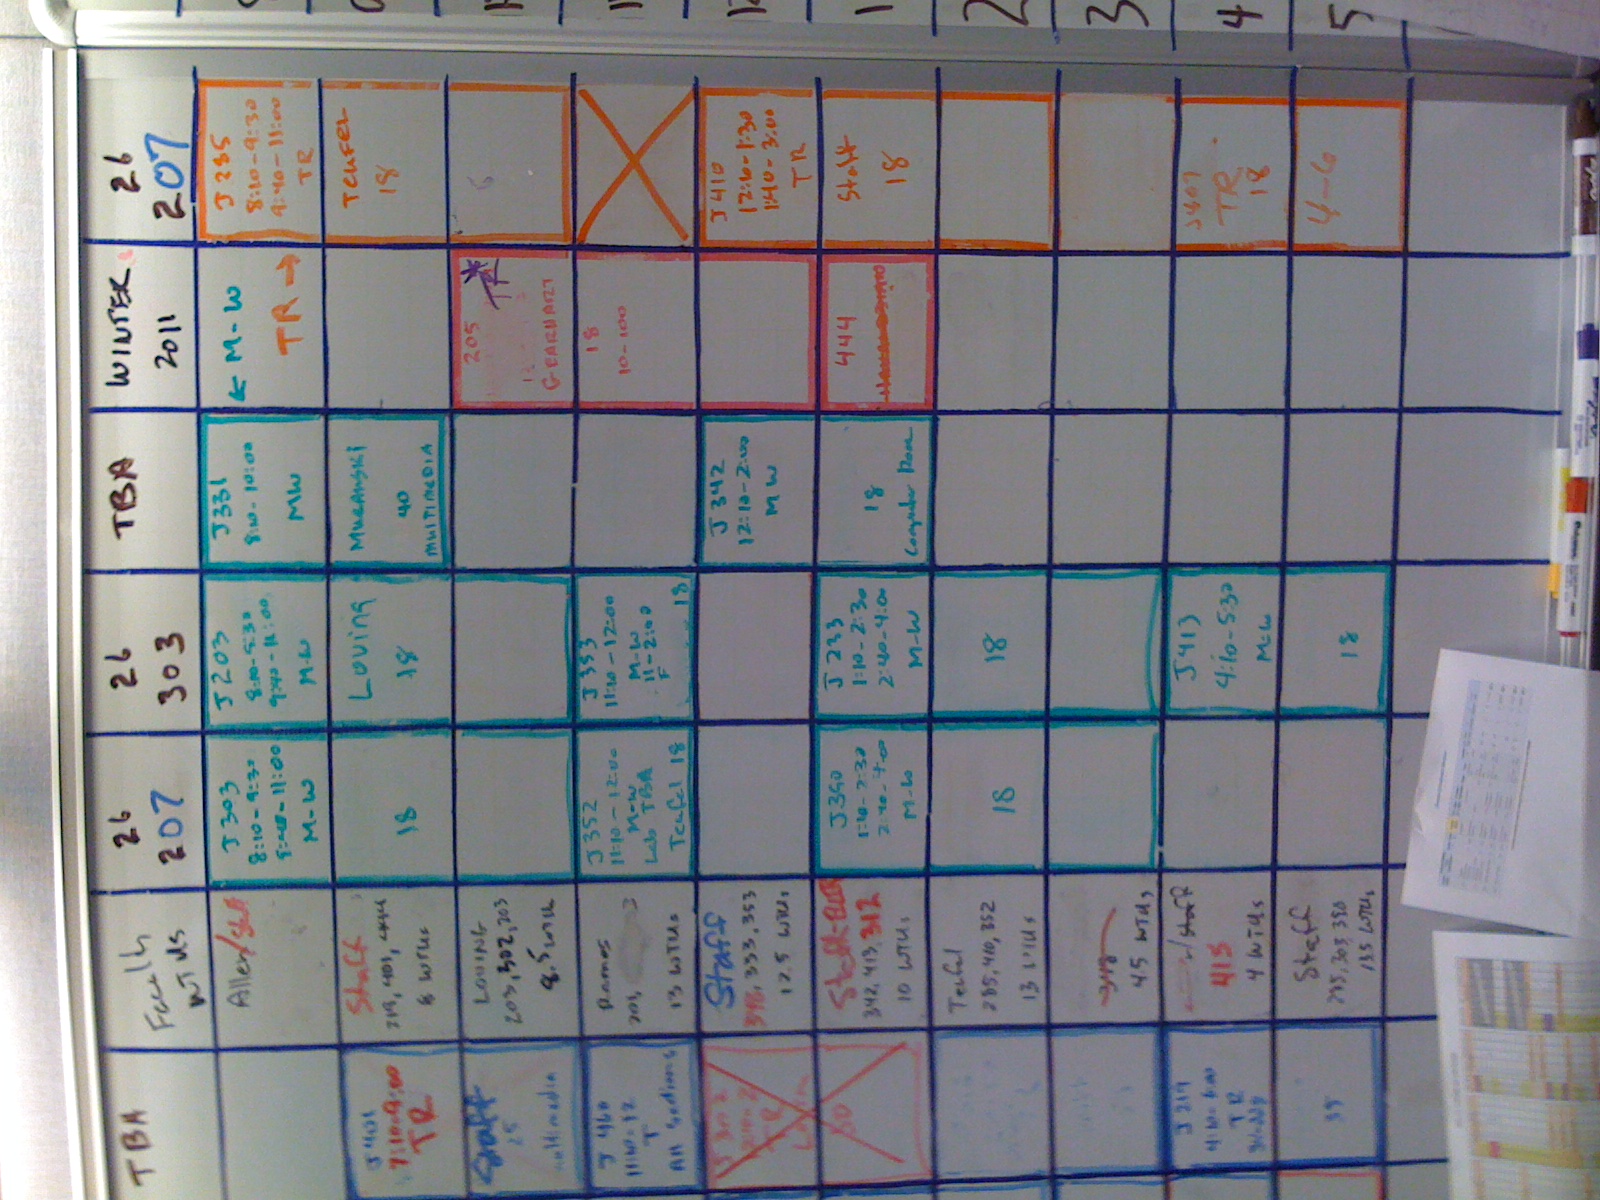 TBA
Faculty
WTUs
26
207
26
303
TBA
WINTER
2011
26
207
Allen/Staff
J303
8:10-9:30
9:40-11:00
M-W
J203
8:10-9:30
9:40-11:00
M-W
J331
8:10-10:00
MW
← M-W
TR →
J285
8:10-9:30
9:40-11:00
TR
J401
7:10-9:00
TR
Staff
219, 401, 444
8 WTUs
18
Loving
18
40
MULTIMEDIA
TEUFEL
18
Staff
25
multimedia
LOVING
203, 302, 203
8.5 WTUs
205
TR
GEARHART
J 460
11:10-12
T
All Sections
Ramos
201,
13 WTUs
J352
11:10-12:00
M-W
Lab TBA
Teufel 18
J353
11:10-12:00
M-W
11-2:00
F
18
18
10-100
J 302
TR
30
Staff
348, 333, 353
12.5 WTUs
J342
12:10-2:00
MW
J410
12:10-1:30
1:40-3:00
TR
342, 413, 312
10 WTUs
J390
1:10-2:30
2:40-4:00
M-W
J233
1:10-2:30
2:40-4:00
M-W
18
Computer Room
444
Staff
18
Teufel
285, 410, 352
13 WTUs
18
18
348
4.5 WTUs
J219
4:10-6:00
TR
/Staff
413
4 WTUs
J413
4:10-5:30
M-W
J407
TR
18
35
Staff
285, 303, 390
13.5 WTUs
18
4-6
1
2
3
4
5